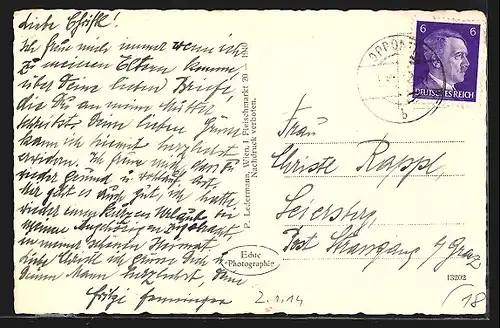 Liebe Christl!
Ich freue mich immer wenn ich
zu meinen Eltern komme,
über Deine lieben Briefe,
die Du an meine Mutter
schreibst. Deine lieben Grüße
kann ich hiermit herzlichst
erwidern. Ich freue mich, dass Du
wieder gesund u. wohlauf bist.
Mir geht es auch gut, ich hatte
wieder einen kurzen Urlaub bei
meinen Angehörigen
in meiner schönen Heimat.
Liebe Christl ich grüsse Dich u.
Deinen Mann herzlichst, Deine
Fritzi
2.1.14
P. Ledermann, Wien, I. Fleischmarkt 20 — 1940
Nachdruck verboten.
Echte
Photographie
6 6
DEUTSCHES REICH
b
Frau
Christe Rappl,
Seiersberg,
Post Strassgang b/ Graz
13202
(18)